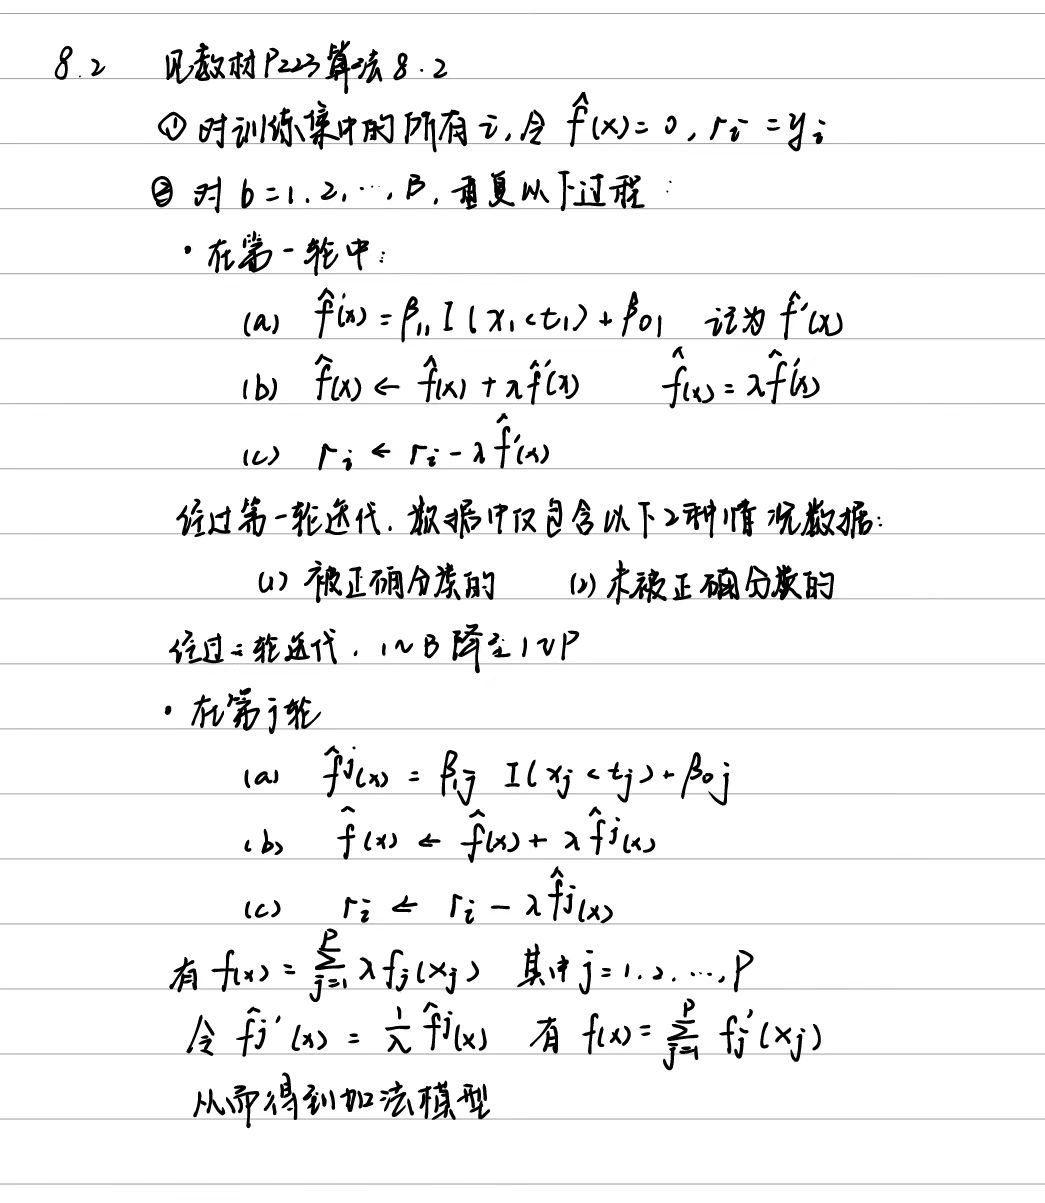 8.2 见教材P223算法8.2
① 对训练集中的所有i,令 f̂(x)=0, rᵢ=yᵢ
② 对 b=1,2,…,B,重复以下过程:
· 在第一轮中:
(a) f̂'(x)=β₁₁I(x₁<t₁)+β₀₁ 记为 f̂'(x)
(b) f̂(x)←f̂(x)+λf̂'(x) f̂(x)=λf̂'(x)
(c) rᵢ←rᵢ-λf̂'(x)
经过第一轮迭代,数据中仅包含以下2种情况数据:
(1) 被正确分类的 (2) 未被正确分类的
经过=轮迭代,1~B降至1~P
· 在第j轮
(a) f̂ʲ(x)=β₁ⱼ I(xⱼ<tⱼ)+β₀ⱼ
(b) f̂(x)←f̂(x)+λf̂ʲ(x)
(c) rᵢ←rᵢ-λf̂ʲ(x)
有 f(x)=∑ⱼ₌₁ᴾ λfⱼ(xⱼ) 其中j=1,2,…,P
令 f̂ⱼ'(x)=1/λ f̂ʲ(x) 有 f(x)=∑ⱼ₌₁ᴾ fⱼ'(xⱼ)
从而得到加法模型